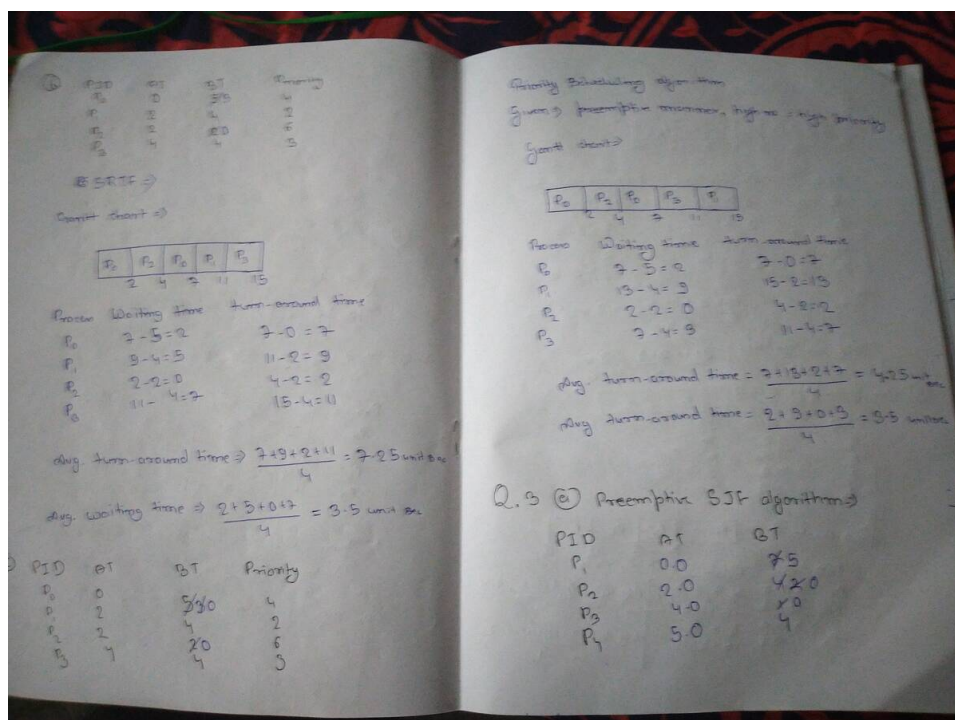 (b) PID AT BT Priority
P0 0 5 3 4
P1 2 4 2
P2 2 2 0 6
P3 4 4 3
SRTF ⇒
Gantt chart ⇒
P0 P2 P0 P1 P3
2 4 7 11 15
Process Waiting time turn-around time
P0 7-5=2 7-0=7
P1 9-4=5 11-2=9
P2 2-2=0 4-2=2
P3 11-4=7 15-4=11
Avg. turn-around time ⇒ 7+9+2+11 / 4 = 7.25 unit sec
Avg. waiting time ⇒ 2+5+0+7 / 4 = 3.5 unit sec
PID AT BT Priority
P0 0 5 3 0 4
P1 2 4 2
P2 2 2 0 6
P3 4 4 3
Priority Scheduling algorithm
Given ⇒ preemptive manner, high no = high priority
Gantt chart ⇒
P0 P2 P0 P3 P1
2 4 7 11 15
Process Waiting time turn-around time
P0 7-5=2 7-0=7
P1 13-4=9 15-2=13
P2 2-2=0 4-2=2
P3 7-4=3 11-4=7
Avg. turn-around time = 7+13+2+7 / 4 = 4.25 unit sec
Avg turn-around time = 2+9+0+3 / 4 = 3.5 unit sec
Q.3 (a) Preemptive SJF algorithm ⇒
PID AT BT
P1 0.0 7 5
P2 2.0 4 2 0
P3 4.0 1 0
P4 5.0 4